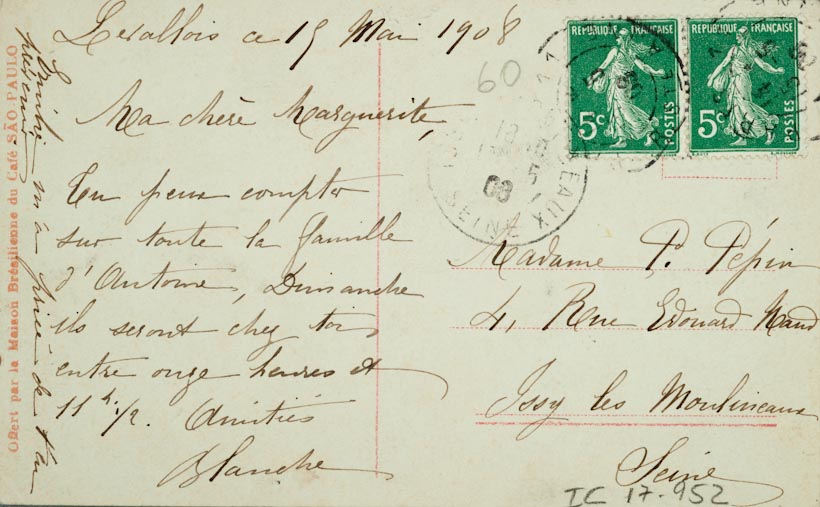 Levallois ce 15 Mai 1908
Ma chère Marguerite,
Tu peux compter
sur toute la famille
d'Antoine, Dimanche
ils seront chez toi,
entre onze heures et
11 h. 1/2. Amitiés
Blanche
m'a priée de t'en
Offert par la Maison Brésilienne du Café SÃO PAULO
60
RÉPUBLIQUE FRANÇAISE
5c
POSTES
RÉPUBLIQUE FRANÇAISE
5c
POSTES
08
SEINE
Madame P. Pépin
4, Rue Edouard Naud
Issy les Moulineaux
Seine
IC 17-952